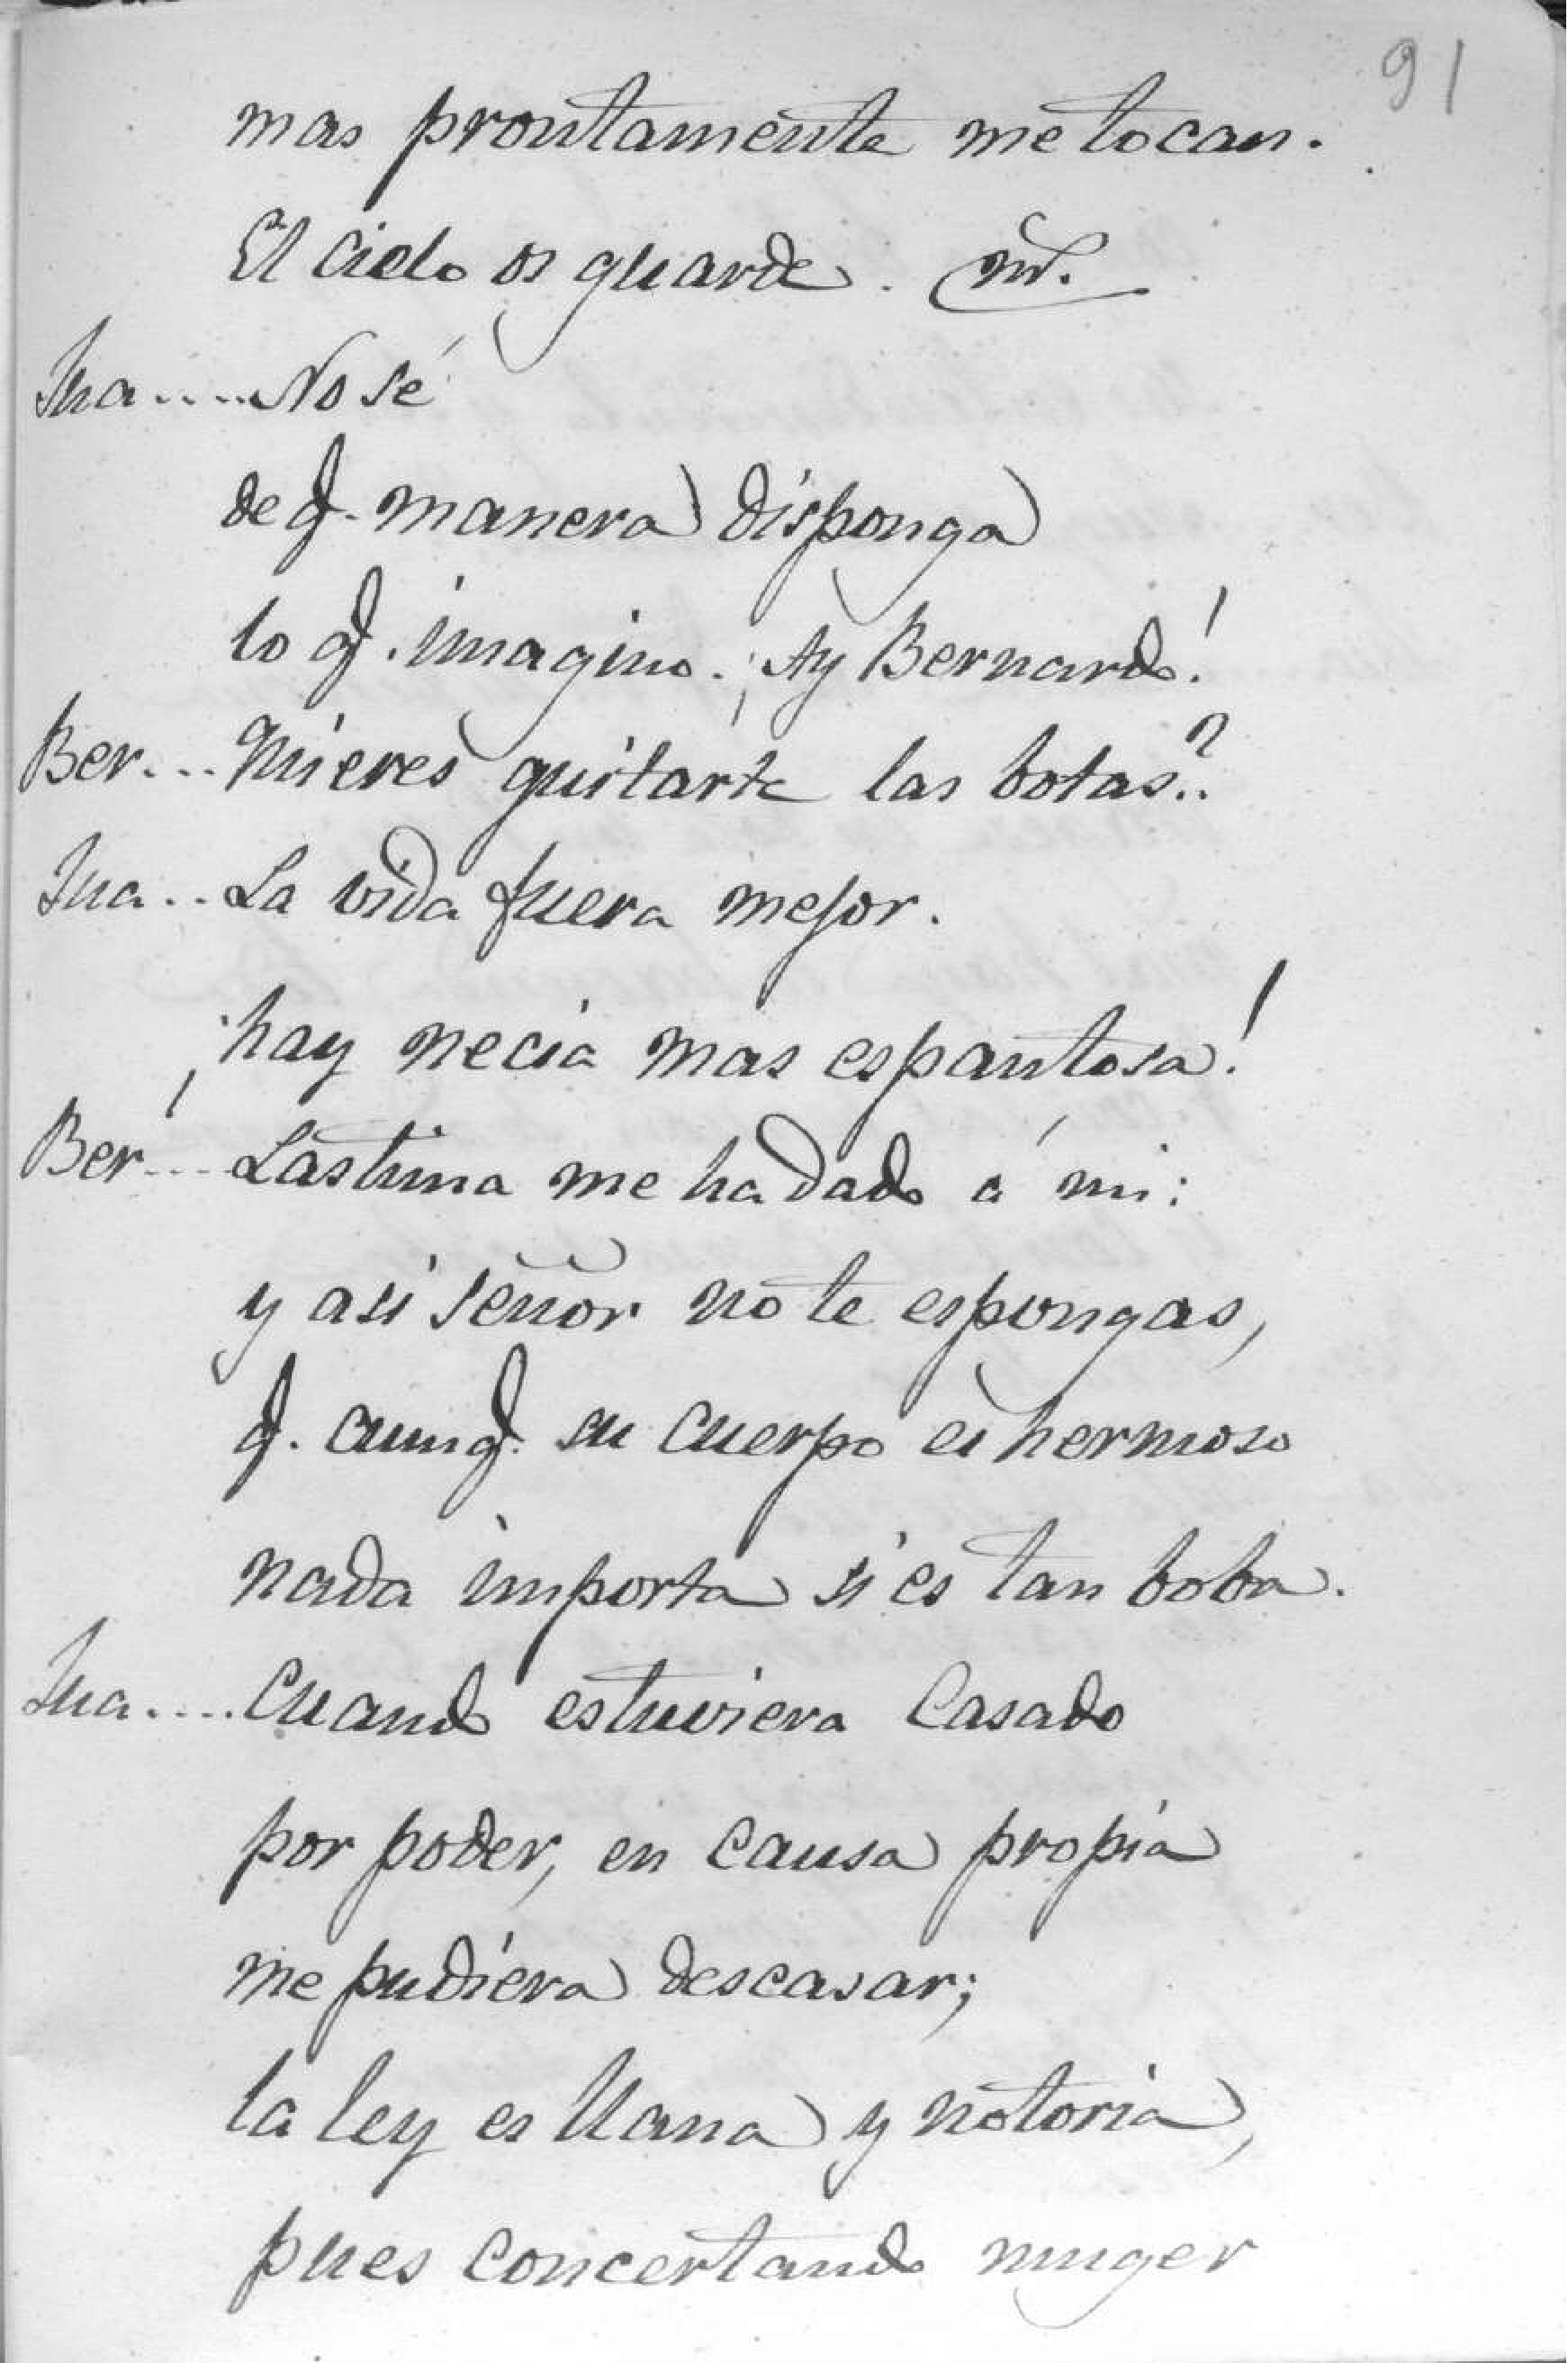 91
mas prontamente me tocan.
El cielo os guarde.
Jua.... No sé
de q. manera disponga
lo q. imagino. ¡Ay Bernardo!
Ber... Quieres quitarte las botas..?
Jua.. La vida fuera mejor.
¡hay necia mas espantosa!
Ber... Lastima me ha dado á mi:
y asi señor no te espongas,
q. aunq. su cuerpo es hermoso
nada importa si es tan boba.
Jua.... Cuando estuviera casado
por poder, en causa propia
me pudiera descasar;
la ley es llana y notoria,
pues concertando muger